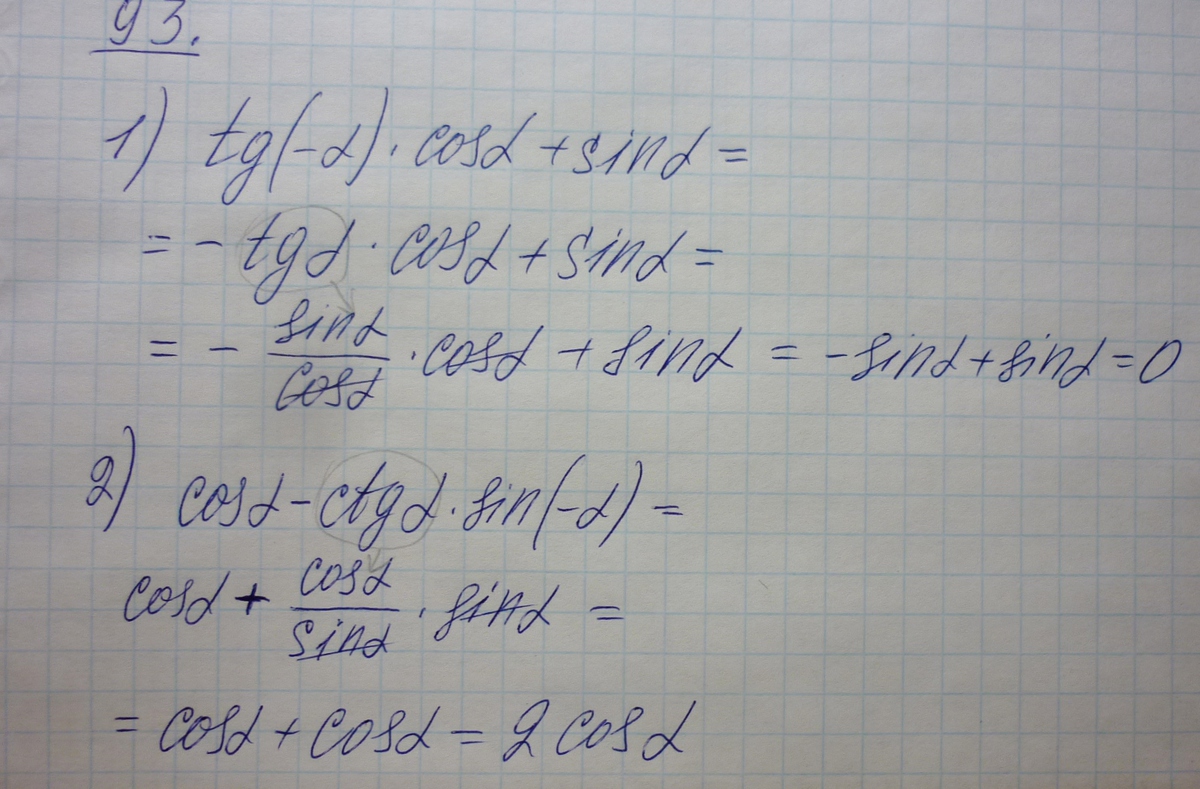 93.
1) tg(-α) · cosα + sinα =
= - tgα · cosα + sinα =
= - sinα/cosα · cosα + sinα = -sinα + sinα = 0
2) cosα - ctgα · sin(-α) =
cosα + cosα/sinα · sinα =
= cosα + cosα = 2 cosα